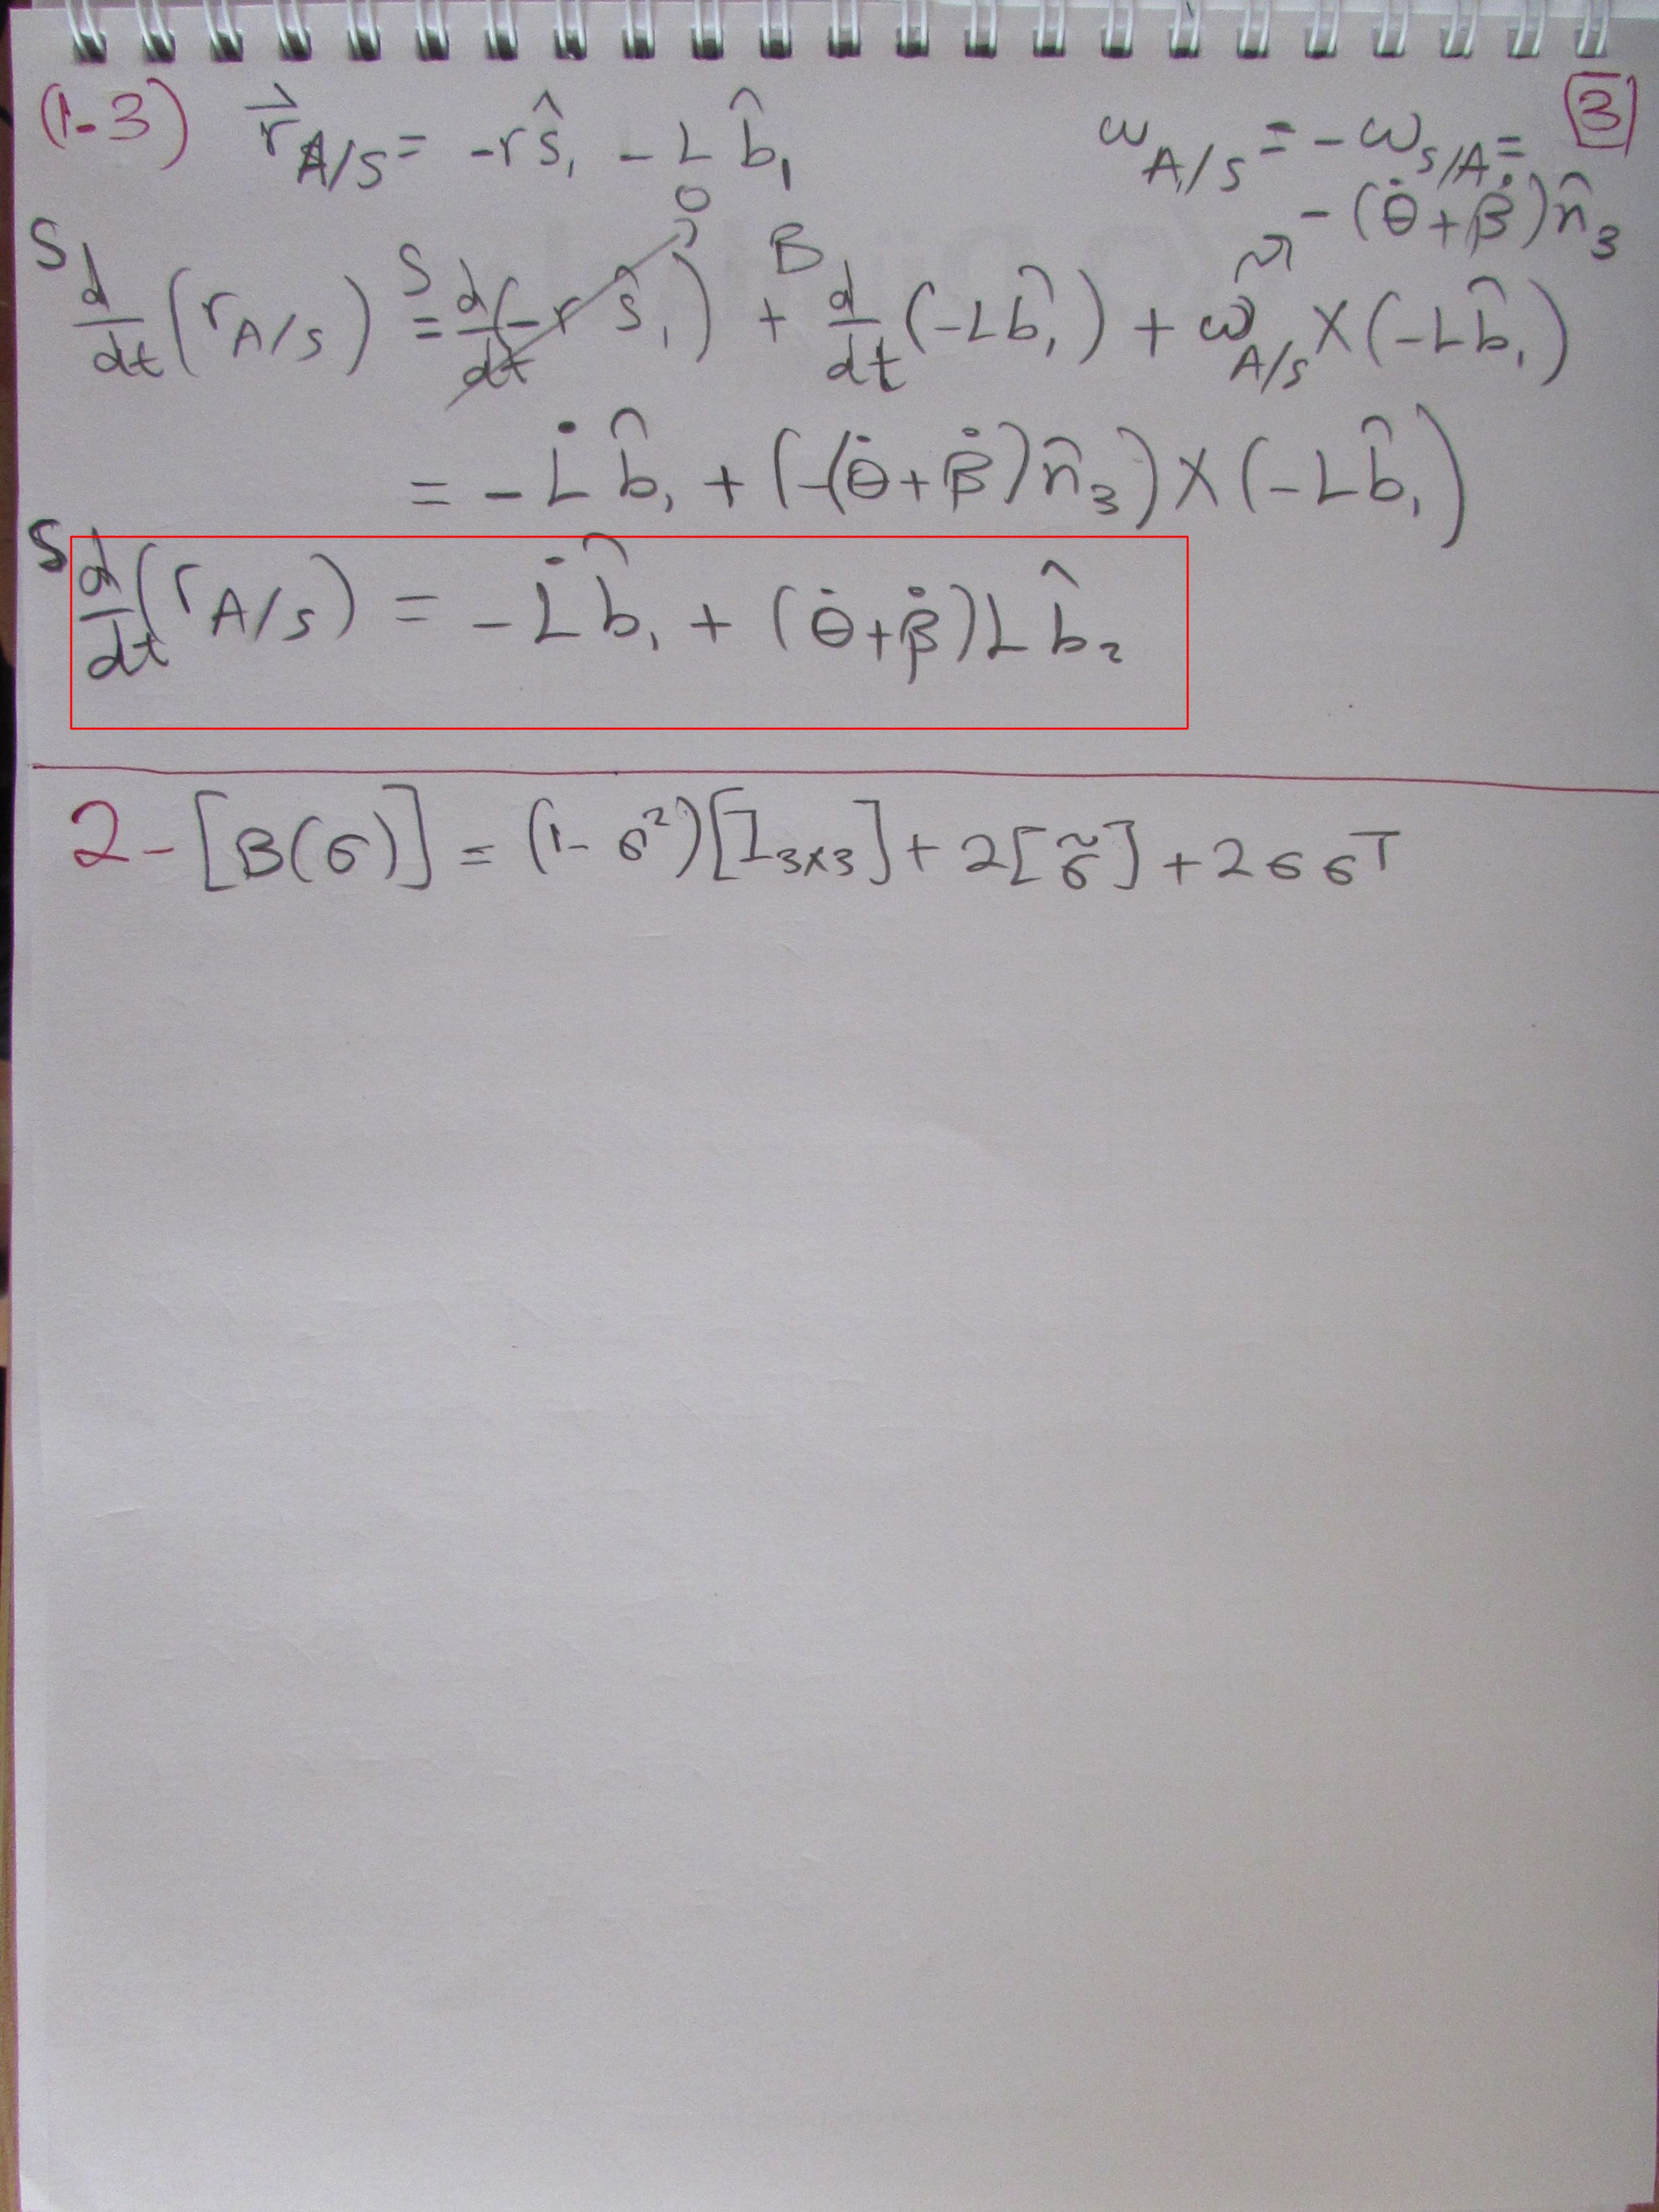 (1-3) r⃗_A/S = -r ŝ₁ - L b̂₁
ω_A/S = -ω_S/A =
[3]
-(θ̇+β̇) n̂₃
ˢd/dt (r_A/S) = ˢd/dt (-r ŝ₁) 0 + ᴮd/dt (-L b̂₁) + ω_A/S × (-L b̂₁)
= -L̇ b̂₁ + (-(θ̇+β̇) n̂₃) × (-L b̂₁)
ˢd/dt (r_A/S) = -L̇ b̂₁ + (θ̇+β̇) L b̂₂
2- [B(σ)] = (1-σ²)[I₃ₓ₃] + 2[σ̃] + 2σσᵀ